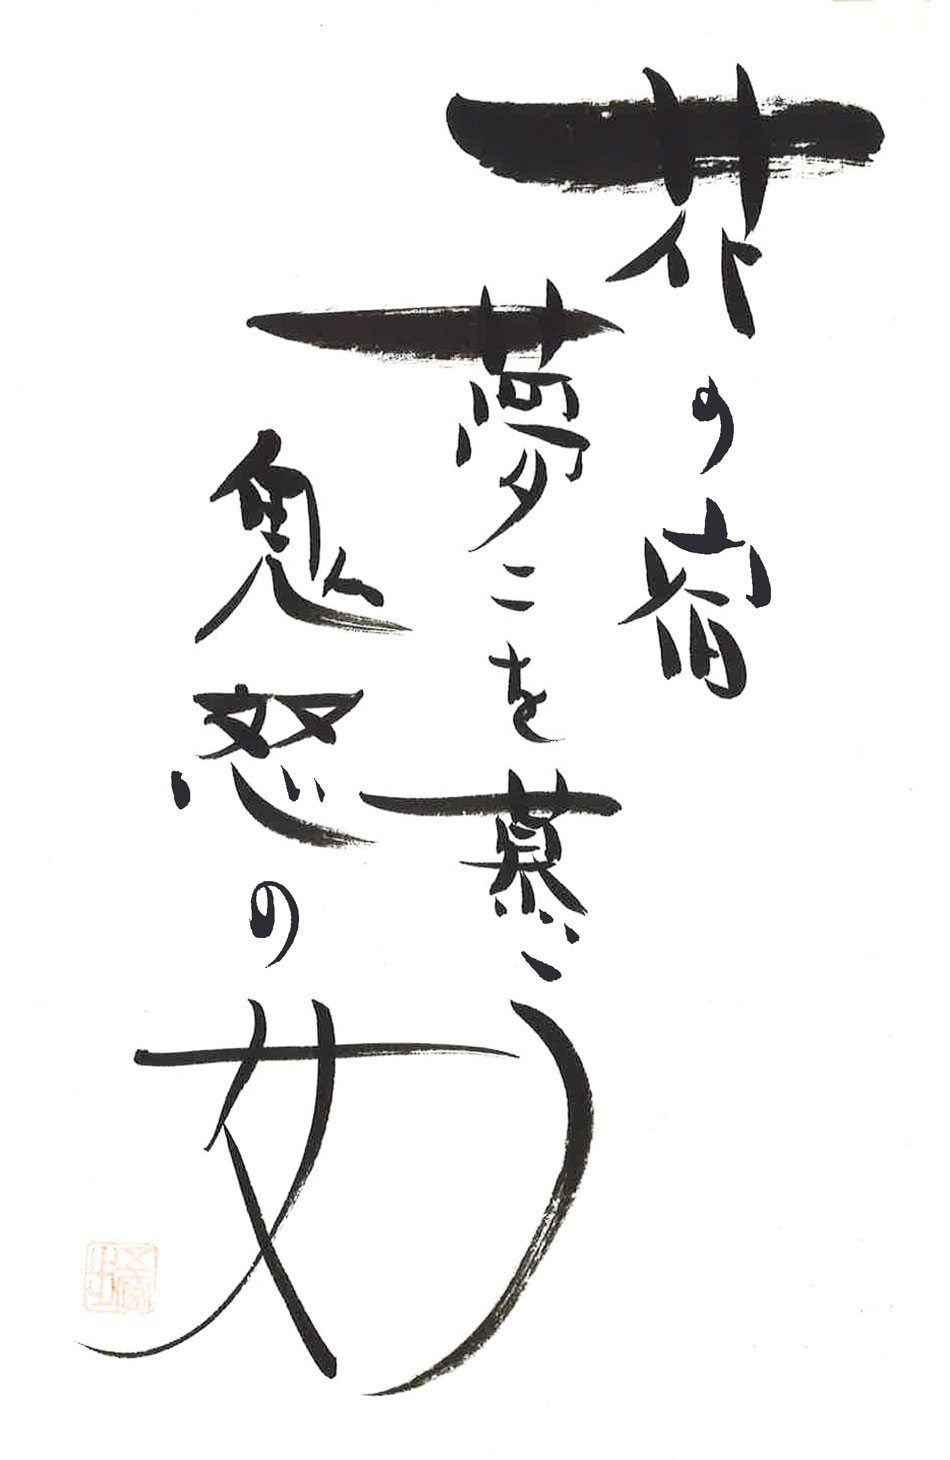 花の宿
夢こを慕う
鬼怒の女